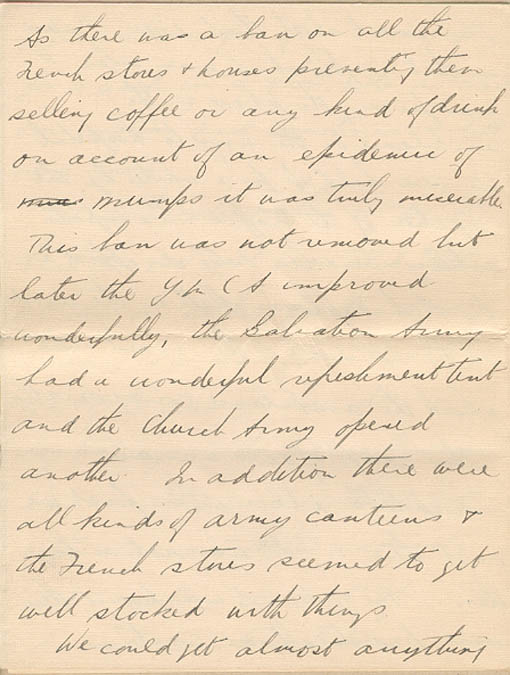 As there was a ban on all the
French stores & houses preventing them
selling coffee or any kind of drink
on account of an epidemic of
mumps it was truly miserable.
This ban was not removed but
later the Y M C A improved
wonderfully, the Salvation Army
had a wonderful refreshment tent
and the Church Army opened
another. In addition there were
all kinds of army canteens &
the French stores seemed to get
well stocked with things.
We could get almost anything